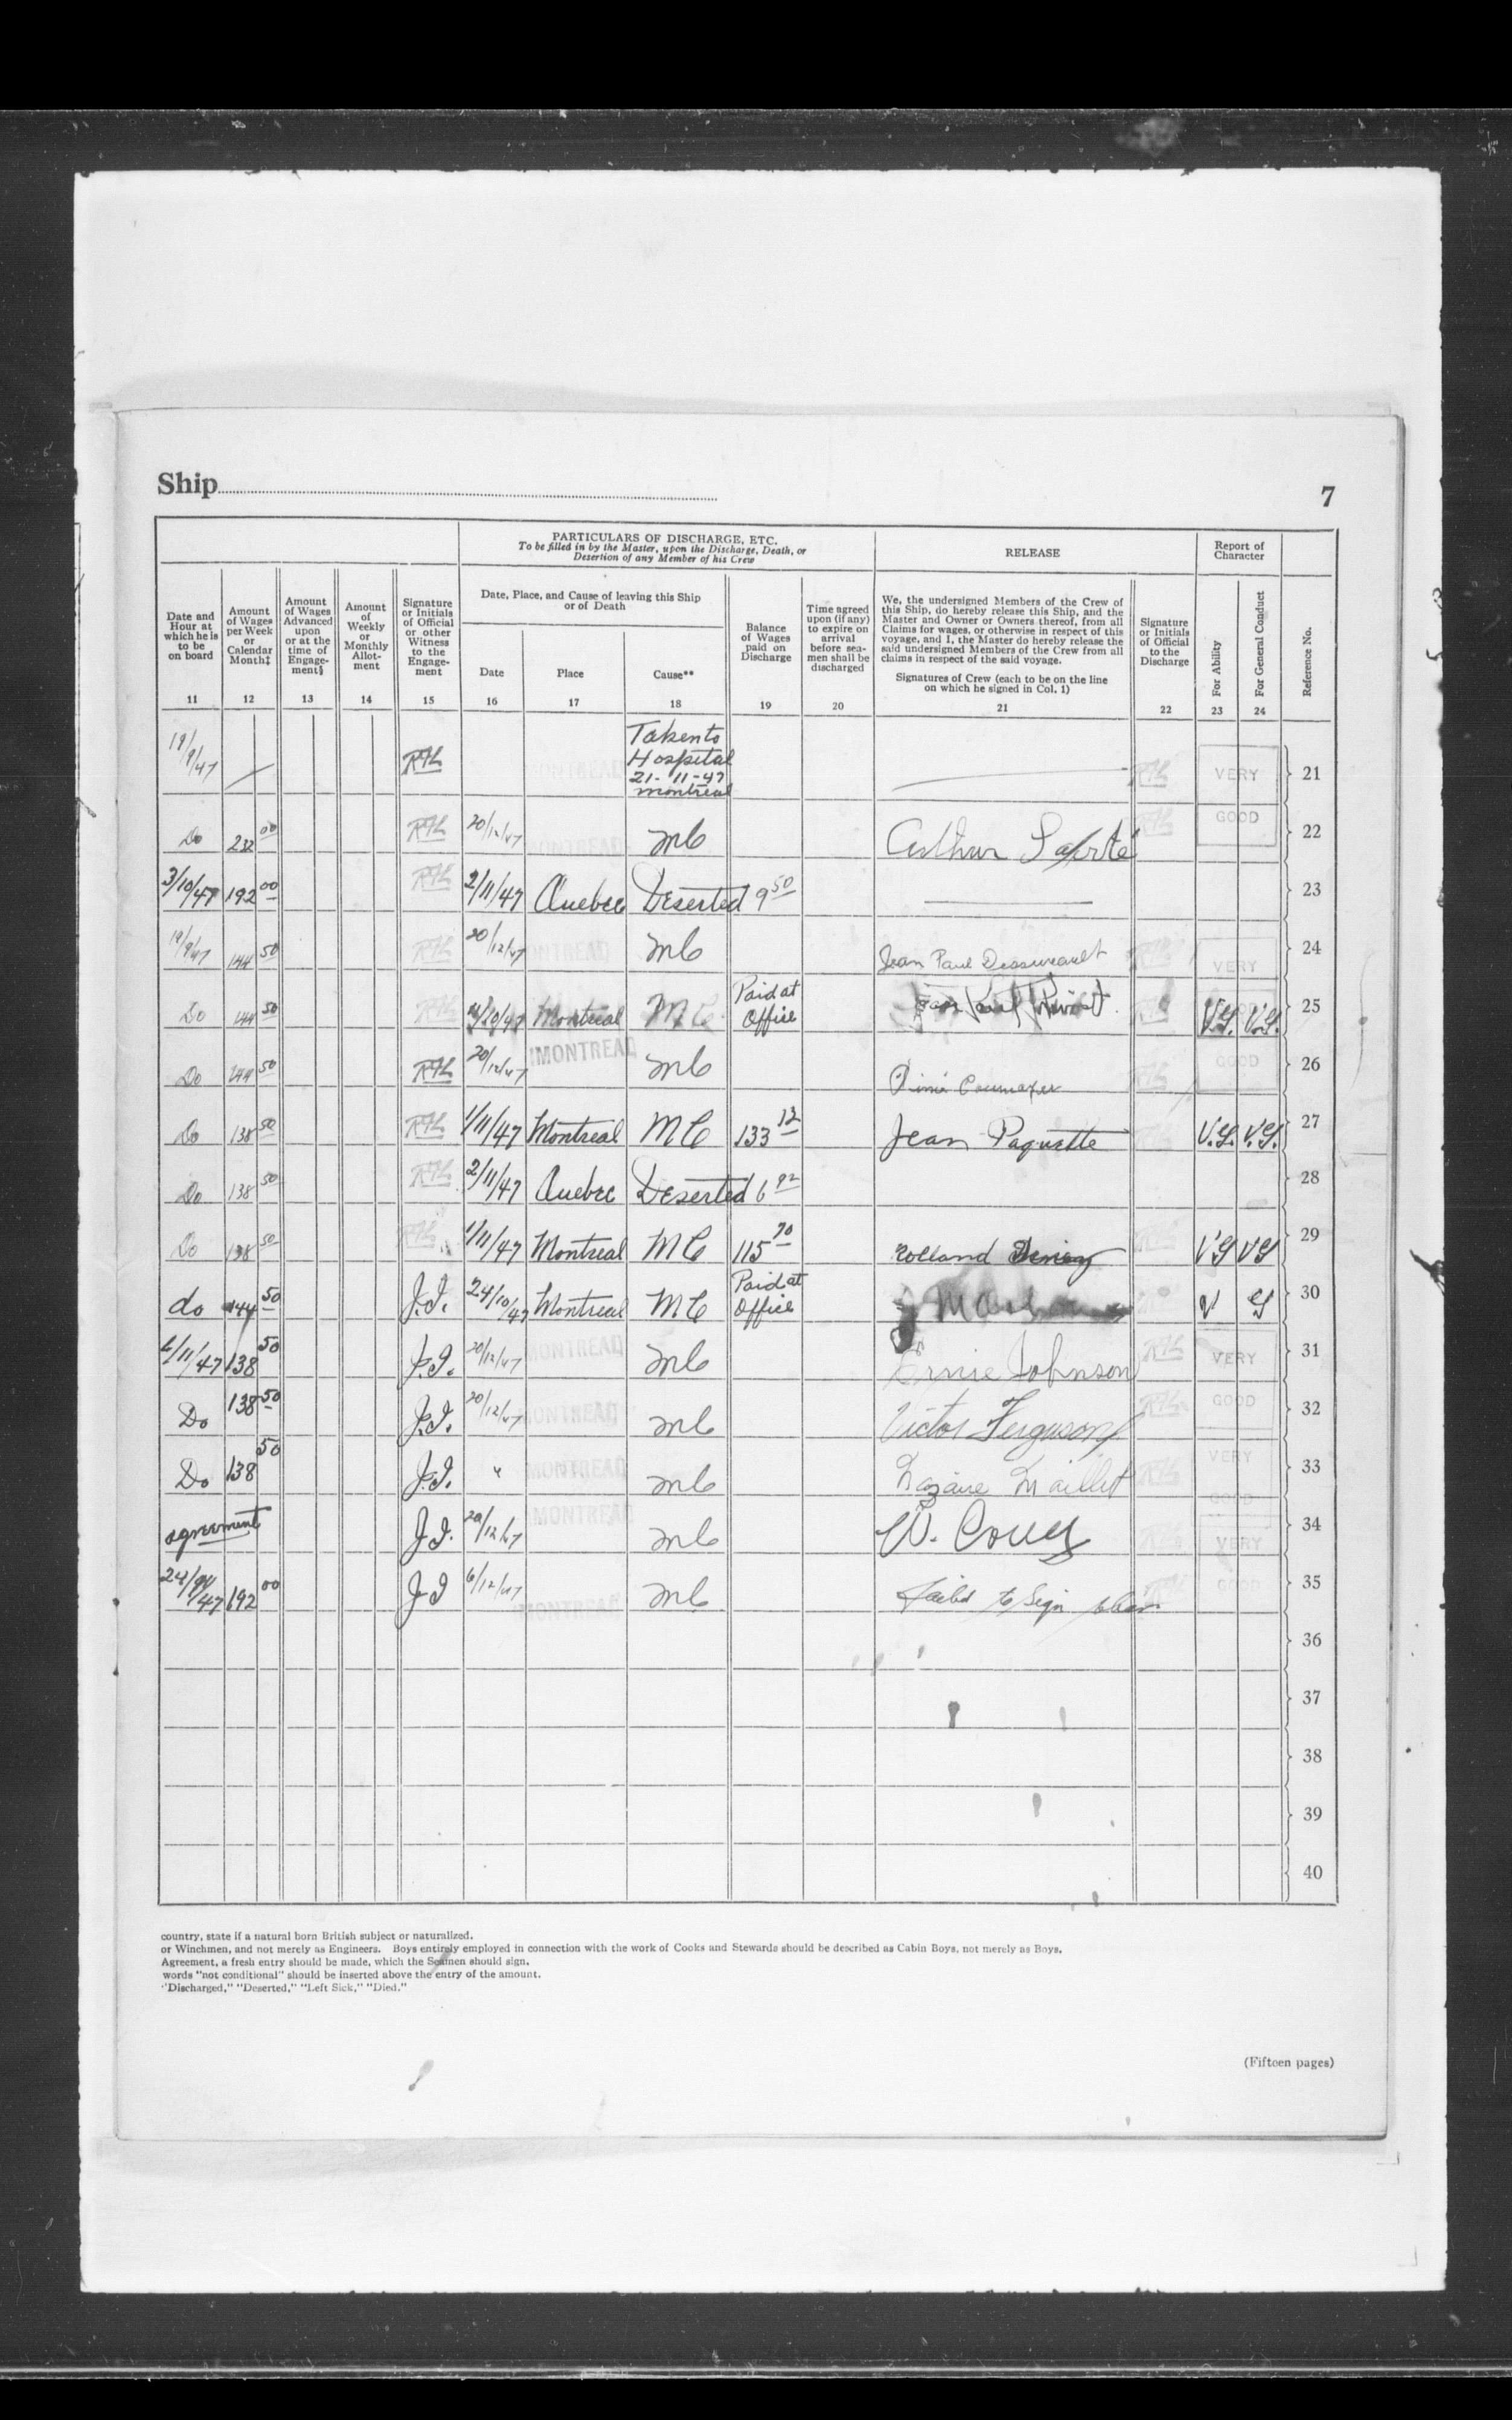 Ship
7
PARTICULARS OF DISCHARGE, ETC.
To be filled in by the Master, upon the Discharge, Death, or
Desertion of any Member of his Crew
RELEASE
Report of
Character
Date and
Hour at
which he is
to be
on board
11
Amount
of Wages
per Week
or
Calendar
Month‡
12
Amount
of Wages
Advanced
upon
or at the
time of
Engage-
ment§
13
Amount
of
Weekly
or
Monthly
Allot-
ment
14
Signature
or Initials
of Official
or other
Witness
to the
Engage-
ment
15
Date, Place, and Cause of leaving this Ship
or of Death
Date
16
Place
17
Cause**
18
Balance
of Wages
paid on
Discharge
19
Time agreed
upon (if any)
to expire on
arrival
before sea-
men shall be
discharged
20
We, the undersigned Members of the Crew of
this Ship, do hereby release this Ship, and the
Master and Owner or Owners thereof, from all
Claims for wages, or otherwise in respect of this
voyage, and I, the Master do hereby release the
said undersigned Members of the Crew from all
claims in respect of the said voyage.
Signatures of Crew (each to be on the line
on which he signed in Col. 1)
21
Signature
or Initials
of Official
to the
Discharge
22
For Ability
23
For General Conduct
24
Reference No.
19/9/47 MONTREAL Taken to Hospital 21-11-47 Montreal VERY 21
Do 232 00 20/12/47 MONTREAL MC Arthur GOOD 22
3/10/47 192 00 2/11/47 Quebec Deserted 9 50 23
19/9/47 144 50 20/12/47 MONTREAL MC Jean Paul VERY 24
Do 144 50 Montreal MC Paid at Office V.G. V.G. 25
Do 144 50 20/12/47 MONTREAL MC GOOD 26
Do 138 50 1/11/47 Montreal MC 133 12 Jean Paquette V.G. V.G. 27
Do 138 50 2/11/47 Quebec Deserted 28
Do 138 50 1/11/47 Montreal MC 115 70 Rolland VG VG 29
do 144 50 J.I. 24/10/47 Montreal MC Paid at Office V G 30
138 50 J.I. 20/12/47 MONTREAL MC Ernie Johnson VERY 31
Do 138 50 J.I. 20/12/47 MONTREAL MC Victor Ferguson GOOD 32
Do 138 50 J.I. " MONTREAL MC Maillet VERY GOOD 33
agreement J.I. 20/12/47 MONTREAL MC W. VERY 34
192 00 J.I 6/12/47 MONTREAL MC Failed to Sign GOOD 35
36
37
38
39
40
country, state if a natural born British subject or naturalized.
or Winchmen, and not merely as Engineers. Boys entirely employed in connection with the work of Cooks and Stewards should be described as Cabin Boys, not merely as Boys.
Agreement, a fresh entry should be made, which the Seamen should sign.
words "not conditional" should be inserted above the entry of the amount.
"Discharged," "Deserted," "Left Sick," "Died."
(Fifteen pages)